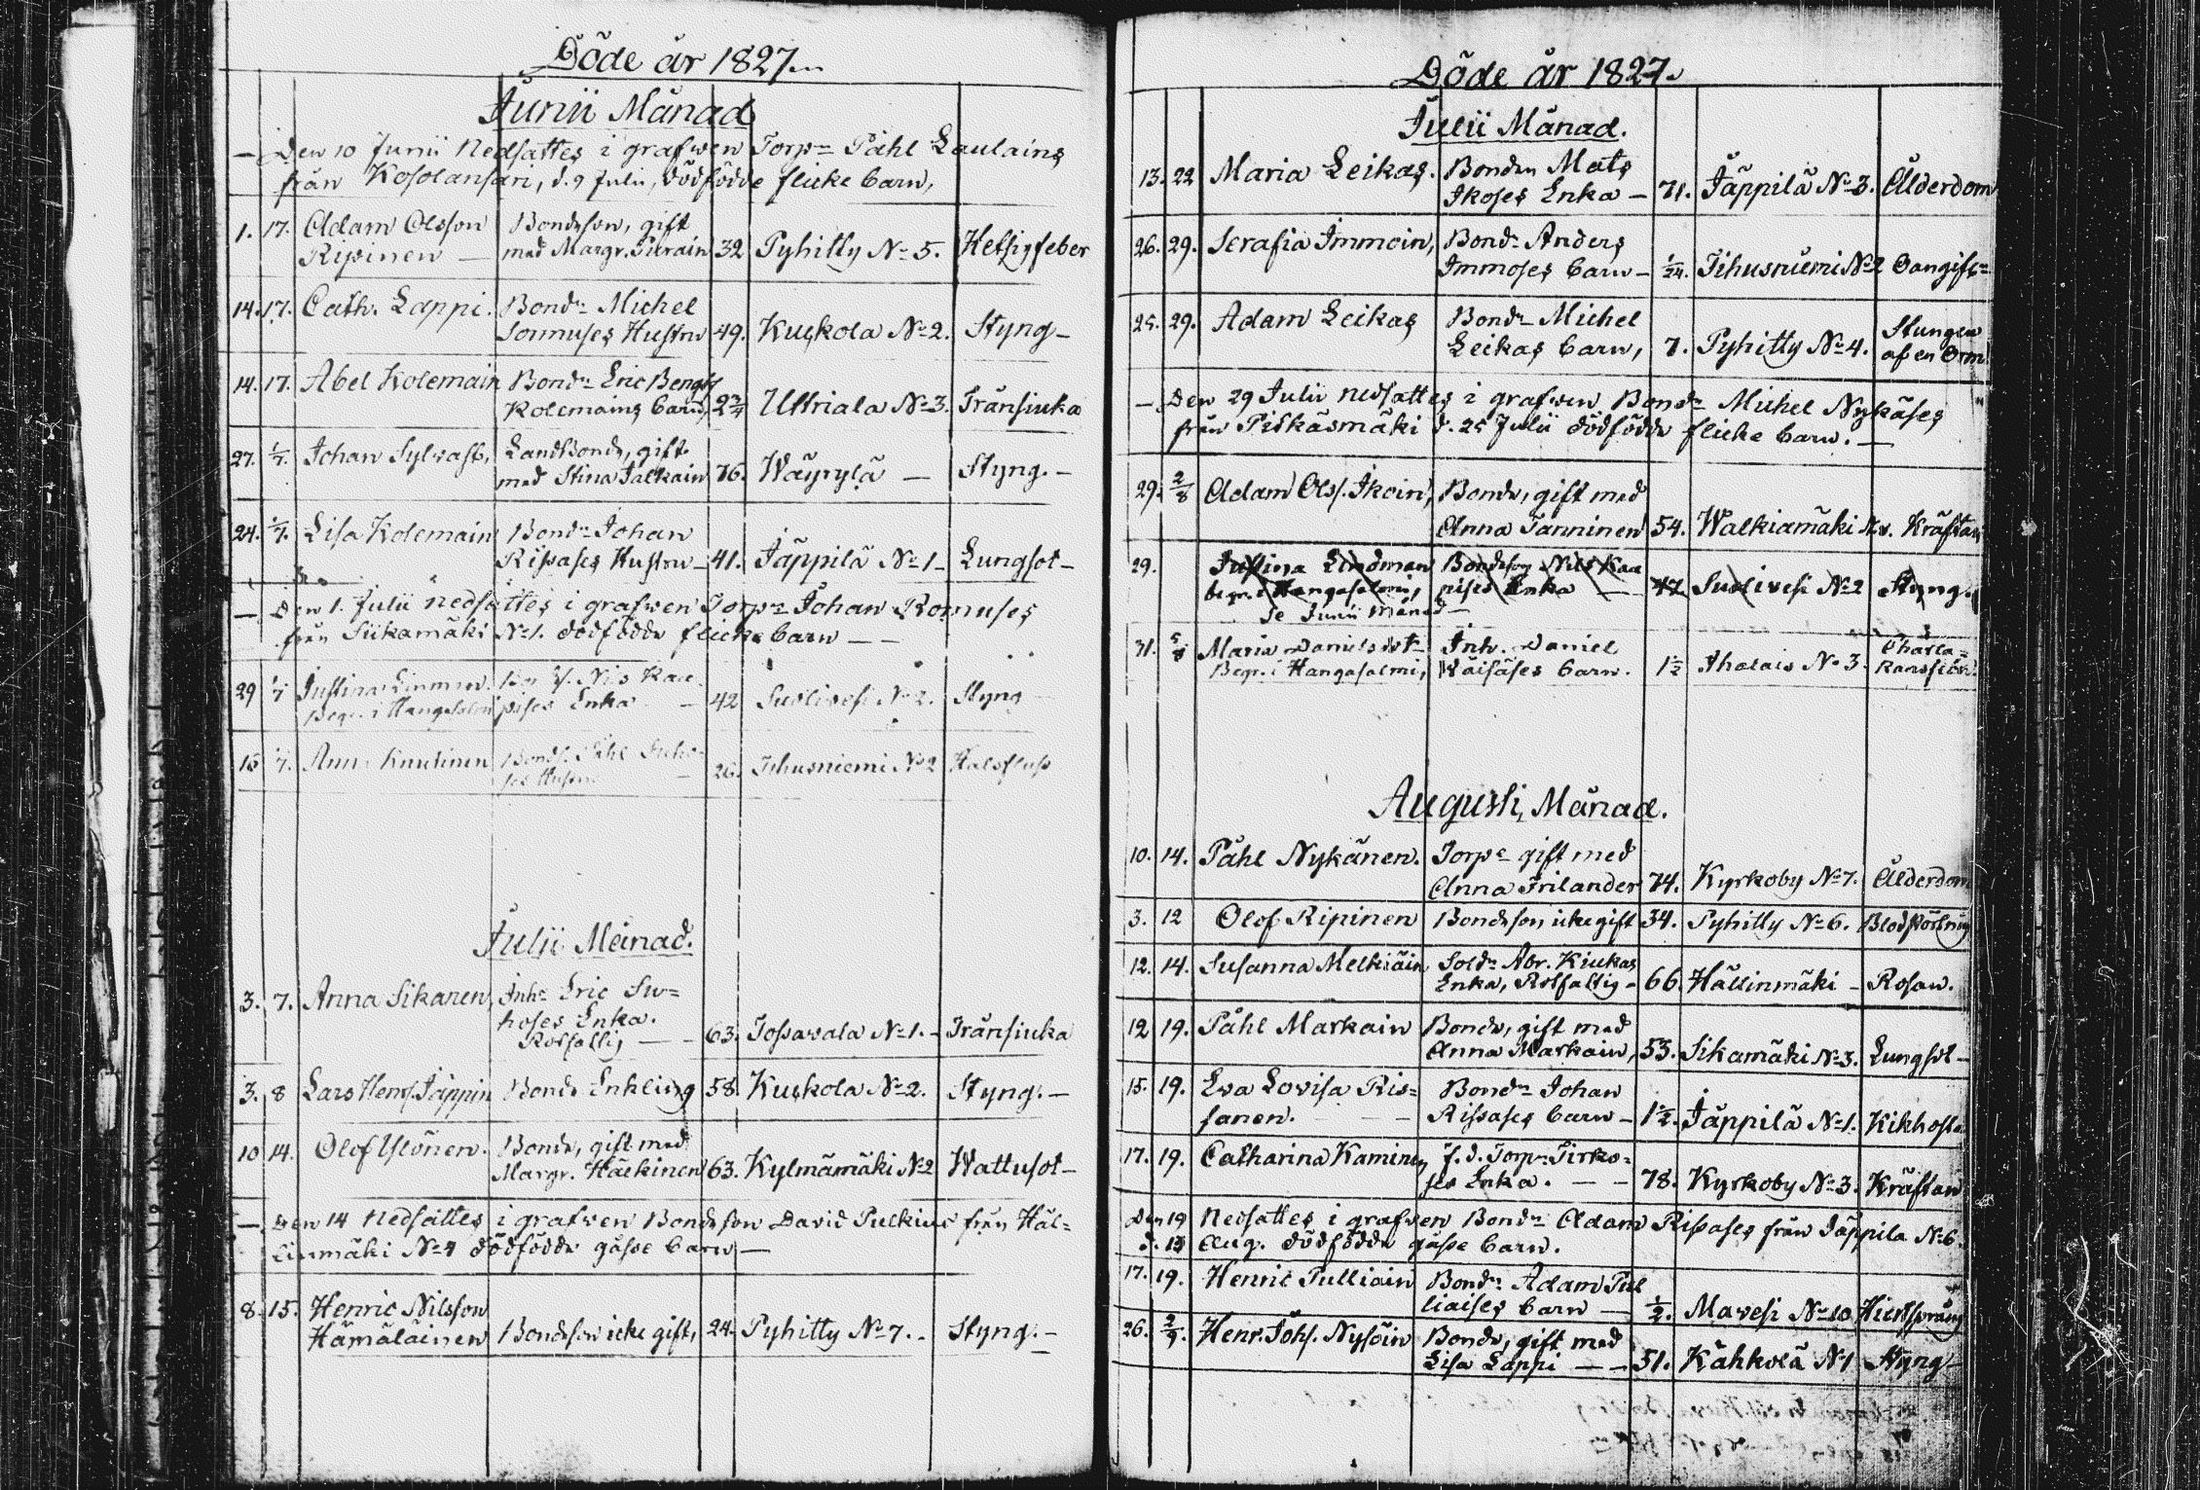 Döde år 1827.
Junii Månad
— Den 10 Junii Nedsattes i grafwen Torpn Påhl Laulains
från Kosolansari, d. 9 Julii, dödfödde flicke barn,
1. 17. Adam Olsson Bondeson, gift
Ripinen — med Margr. Purain 32 Pyhitty No 5. Hetsigfeber
14. 17. Cath. Lappi. Bondn Michel
Sormuses Hustru 49. Kuskola No 2. Styng —
14. 17. Abel Kolemain Bondn Eric Bengts
Kolemains barn, 2 3/4 Uttriala No 3. Trånsiuka
27. 1/7. Johan Sylvast, Landbonde, gift
med Stina Jalkain 76. Wäyrylä — Styng. —
24. 1/7. Lisa Kolemain Bondn Johan
Rissases Hustru — 41. Jäppilä No 1 — Lungsot —
— Den 1. Julii nedsattes i grafwen Torpn Johan Romuses
från Siikamäki No 1. dödfödde flicke barn — —
29 1/7 Justina
Begr. i Hangasalmi Enka — 42 Suolivesi No 2. Styng
16 1/7. Anna Knutinen Bond. Påhl
Hustru — 26. Tihusniemi No 2 Halsfluss
Julii Månad.
3. 7. Anna Sikanen, Inhs Eric Su=
hoses Enka.
Rotfattig — — 63. Jossavala No 1. — Trånsiuka
3. 8 Lars Henrs. Jäppin Bonde Enkling 58. Kuskola No 2. Styng. —
10 14. Olof Ylönen. Bonde, gift med
Margr. Häckinen 63. Kylmämäki No 2 Wattusot —
— Den 14 Nedsattes i grafwen Bondeson David Pulkius från Häl=
linmäki No 4 dödfödde gåsse barn —
8. 15. Henric Nilsson
Hämäläinen Bondeson icke gift, 24. Pyhitty No 7. Styng. —
Döde år 1827.
Julii Månad.
13. 22 Maria Leikas. Bonden Mats
Ikoses Enka — 71. Jäppilä No 3. Ålderdom
26. 29. Serafia Immoin, Bondn Anders
Immoses barn — 1/24. Tihusniemi No 2 Oangifv=
25. 29. Adam Leikas Bondn Michel Stungen
Leikas barn, 7. Pyhitty No 4. af en Orm
— Den 29 Julii nedsattes i grafwen Bondn Michel Nykäses
från Pitkäsmäki d. 25 Julii dödfödde flicke barn. —
29. 2/8 Adam Olss. Ikoin, Bonde, gift med
Anna Janninen 54. Walkiamäki Kräftan
29. Justina Lindman Bondeson Nils Kau
begr. i Hangasalmi, pises Enka — 42 Suolivesi No 2 Styng.
Se Junii Månad —
31. 5/8 Maria Danielsdotr Inh. Daniel
Begr. i Hangasalmi, Wäisäses barn. 1 1/2 Ahalais No 3. Charla=
kansfeber.
Augusti, Månad.
10. 14. Påhl Nykänen. Torpe gift med
Anna Frilander 74. Kyrkoby No 7. Ålderdom
3. 12 Olof Ripinen Bondeson icke gift 34. Pyhitty No 6. Blodstörtning
12. 14. Susanna Melkiäin Soldn Abr. Kiukas
Enka, Rotfattig — 66. Hällinmäki — Rosan.
12 19. Påhl Markain Bonde, gift med
Anna Markain, 53. Sikamäki No 3. Lungsot —
15. 19. Eva Lovisa Ris= Bondn Johan
sanen. — Rissases barn — 1 1/2. Jäppilä No 1. Kikhosta
17. 19. Catharina Kaminen f. d. Torpn Tirko=
ses Enka. — — 78. Kyrkoby No 3. Kräftan
Den 19 Nedsattes i grafwen Bondn Adam Rissases från Jäppila No 6.
d. 13 Aug. dödfödde gåsse barn.
17. 19. Henric Pulliain Bondn Adam Pul
liaises barn — 1/2. Mavesi No 10 Hiertsprång
26. 2/9. Henr. Johs. Nysöin Bonde, gift med
Lisa Lappi — — 51. Kähkölä No 1 Styng —